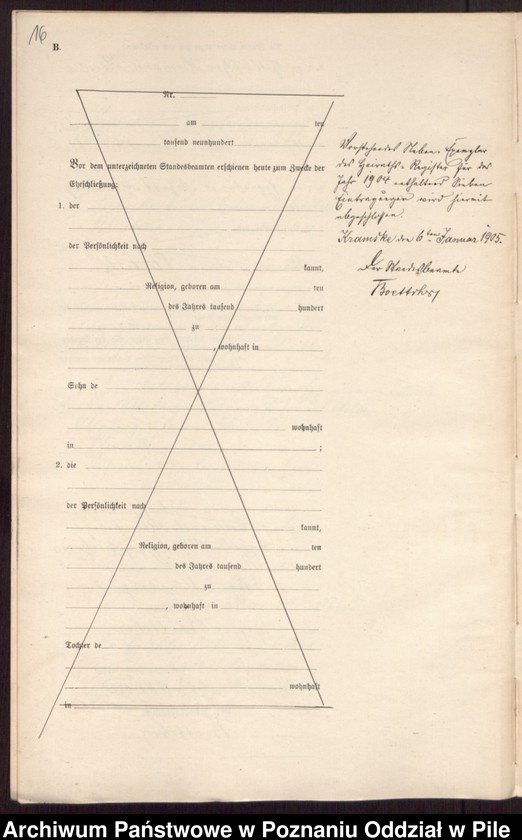 16
B.
Nr.
am ten
tausend neunhundert
Vor dem unterzeichneten Standesbeamten erschienen heute zum Zwecke der
Eheschließung:
1. der
der Persönlichkeit nach
kannt,
Religion, geboren am ten
des Jahres tausend hundert
zu
, wohnhaft in
Sohn de
wohnhaft
in ;
2. die
der Persönlichkeit nach
kannt,
Religion, geboren am ten
des Jahres tausend hundert
zu
, wohnhaft in
Tochter de
wohnhaft
in
Vorstehendes Neben-Exemplar
des Heiraths-Register für das
Jahr 1904 enthaltend Sieben
Eintragungen wird hiermit
abgeschlossen.
Kramske den 6ten Januar 1905.
Der Standesbeamte
Archiwum Państwowe w Poznaniu Oddział w Pile